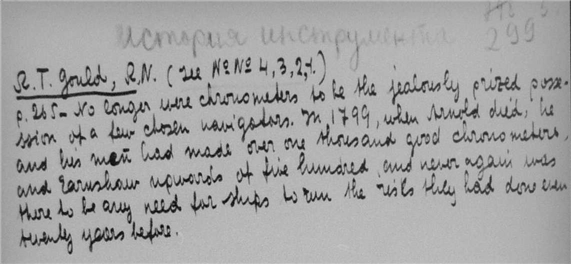 История инструмента
299
R. T. Gould, R.N. (See №№ 4, 3, 2, 1.)
p. 265 – No longer were chronometers to be the jealously prized posse-
ssion of a few chosen navigators. In 1799, when Arnold died, he
and his men had made over one thousand good chronometers,
and Earnshaw upwards of five hundred, and never again was
there to be any need for ships to run the risks they had done even
twenty years before.